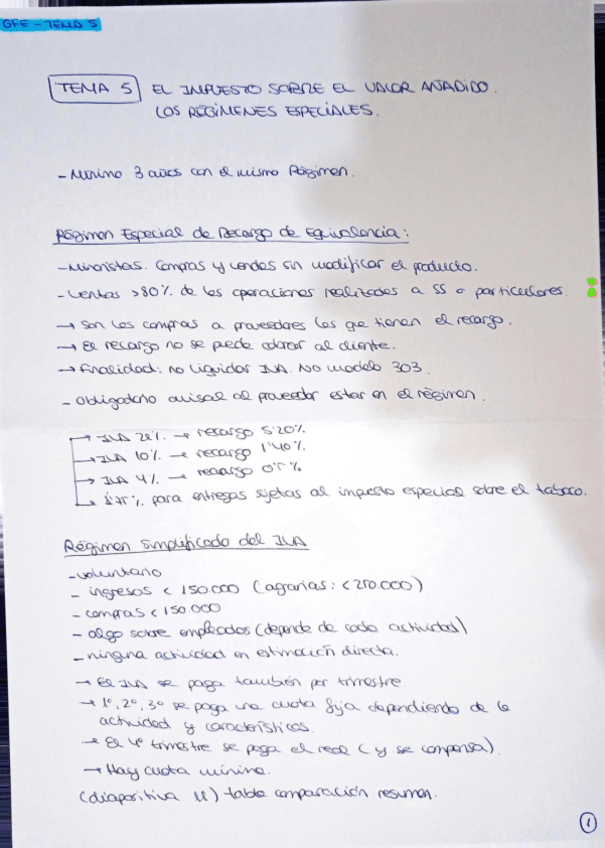 GFE - TEMA 5
TEMA 5 EL IMPUESTO SOBRE EL VALOR AÑADIDO.
LOS REGÍMENES ESPECIALES.
- Mínimo 3 años con el mismo Régimen.
Régimen Especial de Recargo de Equivalencia:
- Minoristas. Compras y vendes sin modificar el producto.
- Ventas >80% de las operaciones realizadas a SS o particulares.
→ Son las compras a proveedores las que tienen el recargo.
→ El recargo no se puede cobrar al cliente.
→ Finalidad: no liquidar IVA. No modelo 303.
- Obligatorio avisar al proveedor estar en el régimen.
→ IVA 21% → recargo 5'20%
→ IVA 10% → recargo 1'40%
→ IVA 4% → recargo 0'5%
→ 1'75% para entregas sujetas al impuesto especial sobre el tabaco.
Régimen Simplificado del IVA
- voluntario
- ingresos < 150.000 (agrarias: < 250.000)
- compras < 150.000
- algo sobre empleados (depende de cada actividad)
- ninguna actividad en estimación directa.
→ El IVA se paga también por trimestre.
→ 1º, 2º, 3º se paga una cuota fija dependiendo de la
actividad y características.
→ El 4º trimestre se paga el real (y se compensa).
→ Hay cuota mínima.
(diapositiva 11) tabla comparación resumen.
1